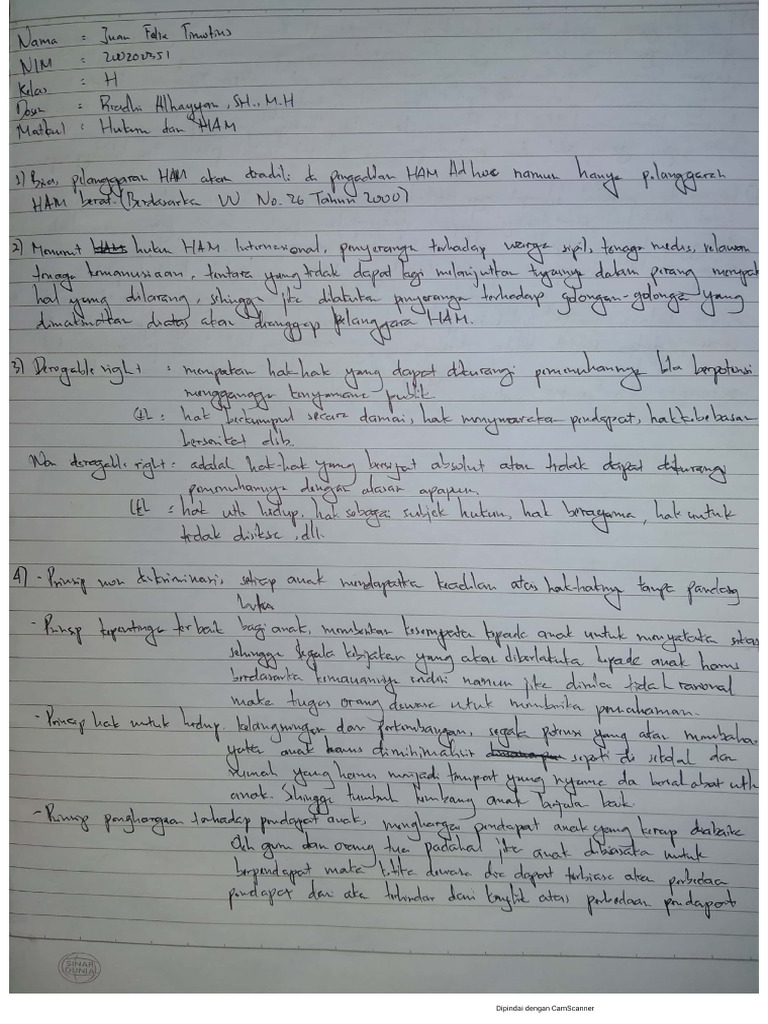 Nama : Juan Felix Timotius
NIM : 200200351
Kelas : H
Dosen : Riadhi Alhayyan, SH., M.H
Matkul : Hukum dan HAM
1) Bisa, pelanggaran HAM akan diadili di pengadilan HAM Ad hoc namun hanya pelanggaran
HAM berat. (Berdasarka UU No. 26 Tahun 2000)
2) Menurut hukum HAM Internasional, penyeranga terhadap warga sipil, tenaga medis, relawan
tenaga kemanusiaan, tentara yang tidak dapat lagi melanjutkan tugasnya dalam perang merupak
hal yang dilarang, sehingga jika dilakuka penyeranga terhadap golongan-golonga yang
dimaksudkan diatas akan dianggap pelanggara HAM.
3) Derogable right : merupakan hak-hak yang dapat dikurangi pemenuhannya bila berpotensi
mengganggu kenyamana publik
Cth : hak berkumpul secara damai, hak menyuaraka pendapat, hak kebebasan
berserikat dlb.
Non derogable right : adalah hak-hak yang bersifat absolut atau tidak dapat dikurangi
pemenuhannya dengan alasan apapun.
Cth : hak utk hidup, hak sebagai subjek hukum, hak beragama, hak untuk
tidak disiksa, dll.
4) - Prinsip non diskriminasi, setiap anak mendapatka keadilan atas hak-haknya tanpa pandang
buku
- Prinsip kepentinga terbaik bagi anak, memberikan kesempata kepada anak untuk menyataka
sehingga segala kebijakan yang akan diberlakuka kepada anak harus
berdasarka kemauannya sendiri namun jika dinilai tidak rasional
maka tugas orang dewasa untuk memberika pemahaman.
- Prinsip hak untuk hidup, kelangsungan dan perkembangan, segala potensi yang akan membaha
yaka anak harus diminimalisir seperti di sekolah dan
rumah yang harus menjadi tempat yang nyama da bersahabat utk
anak. Sehingga tumbuh kembang anak berjala baik
- Prinsip penghargaan terhadap pendapat anak, menghargai pendapat anak yang kerap diabaika
Oleh guru dan orang tua padahal jika anak dibiasaka untuk
berpendapat maka ketika dewasa dia dapat terbiasa akan perbedaa
pendapat dan aka terhindar dari konflik atas perbedaan pendapat
SINAR
DUNIA
Dipindai dengan CamScanner